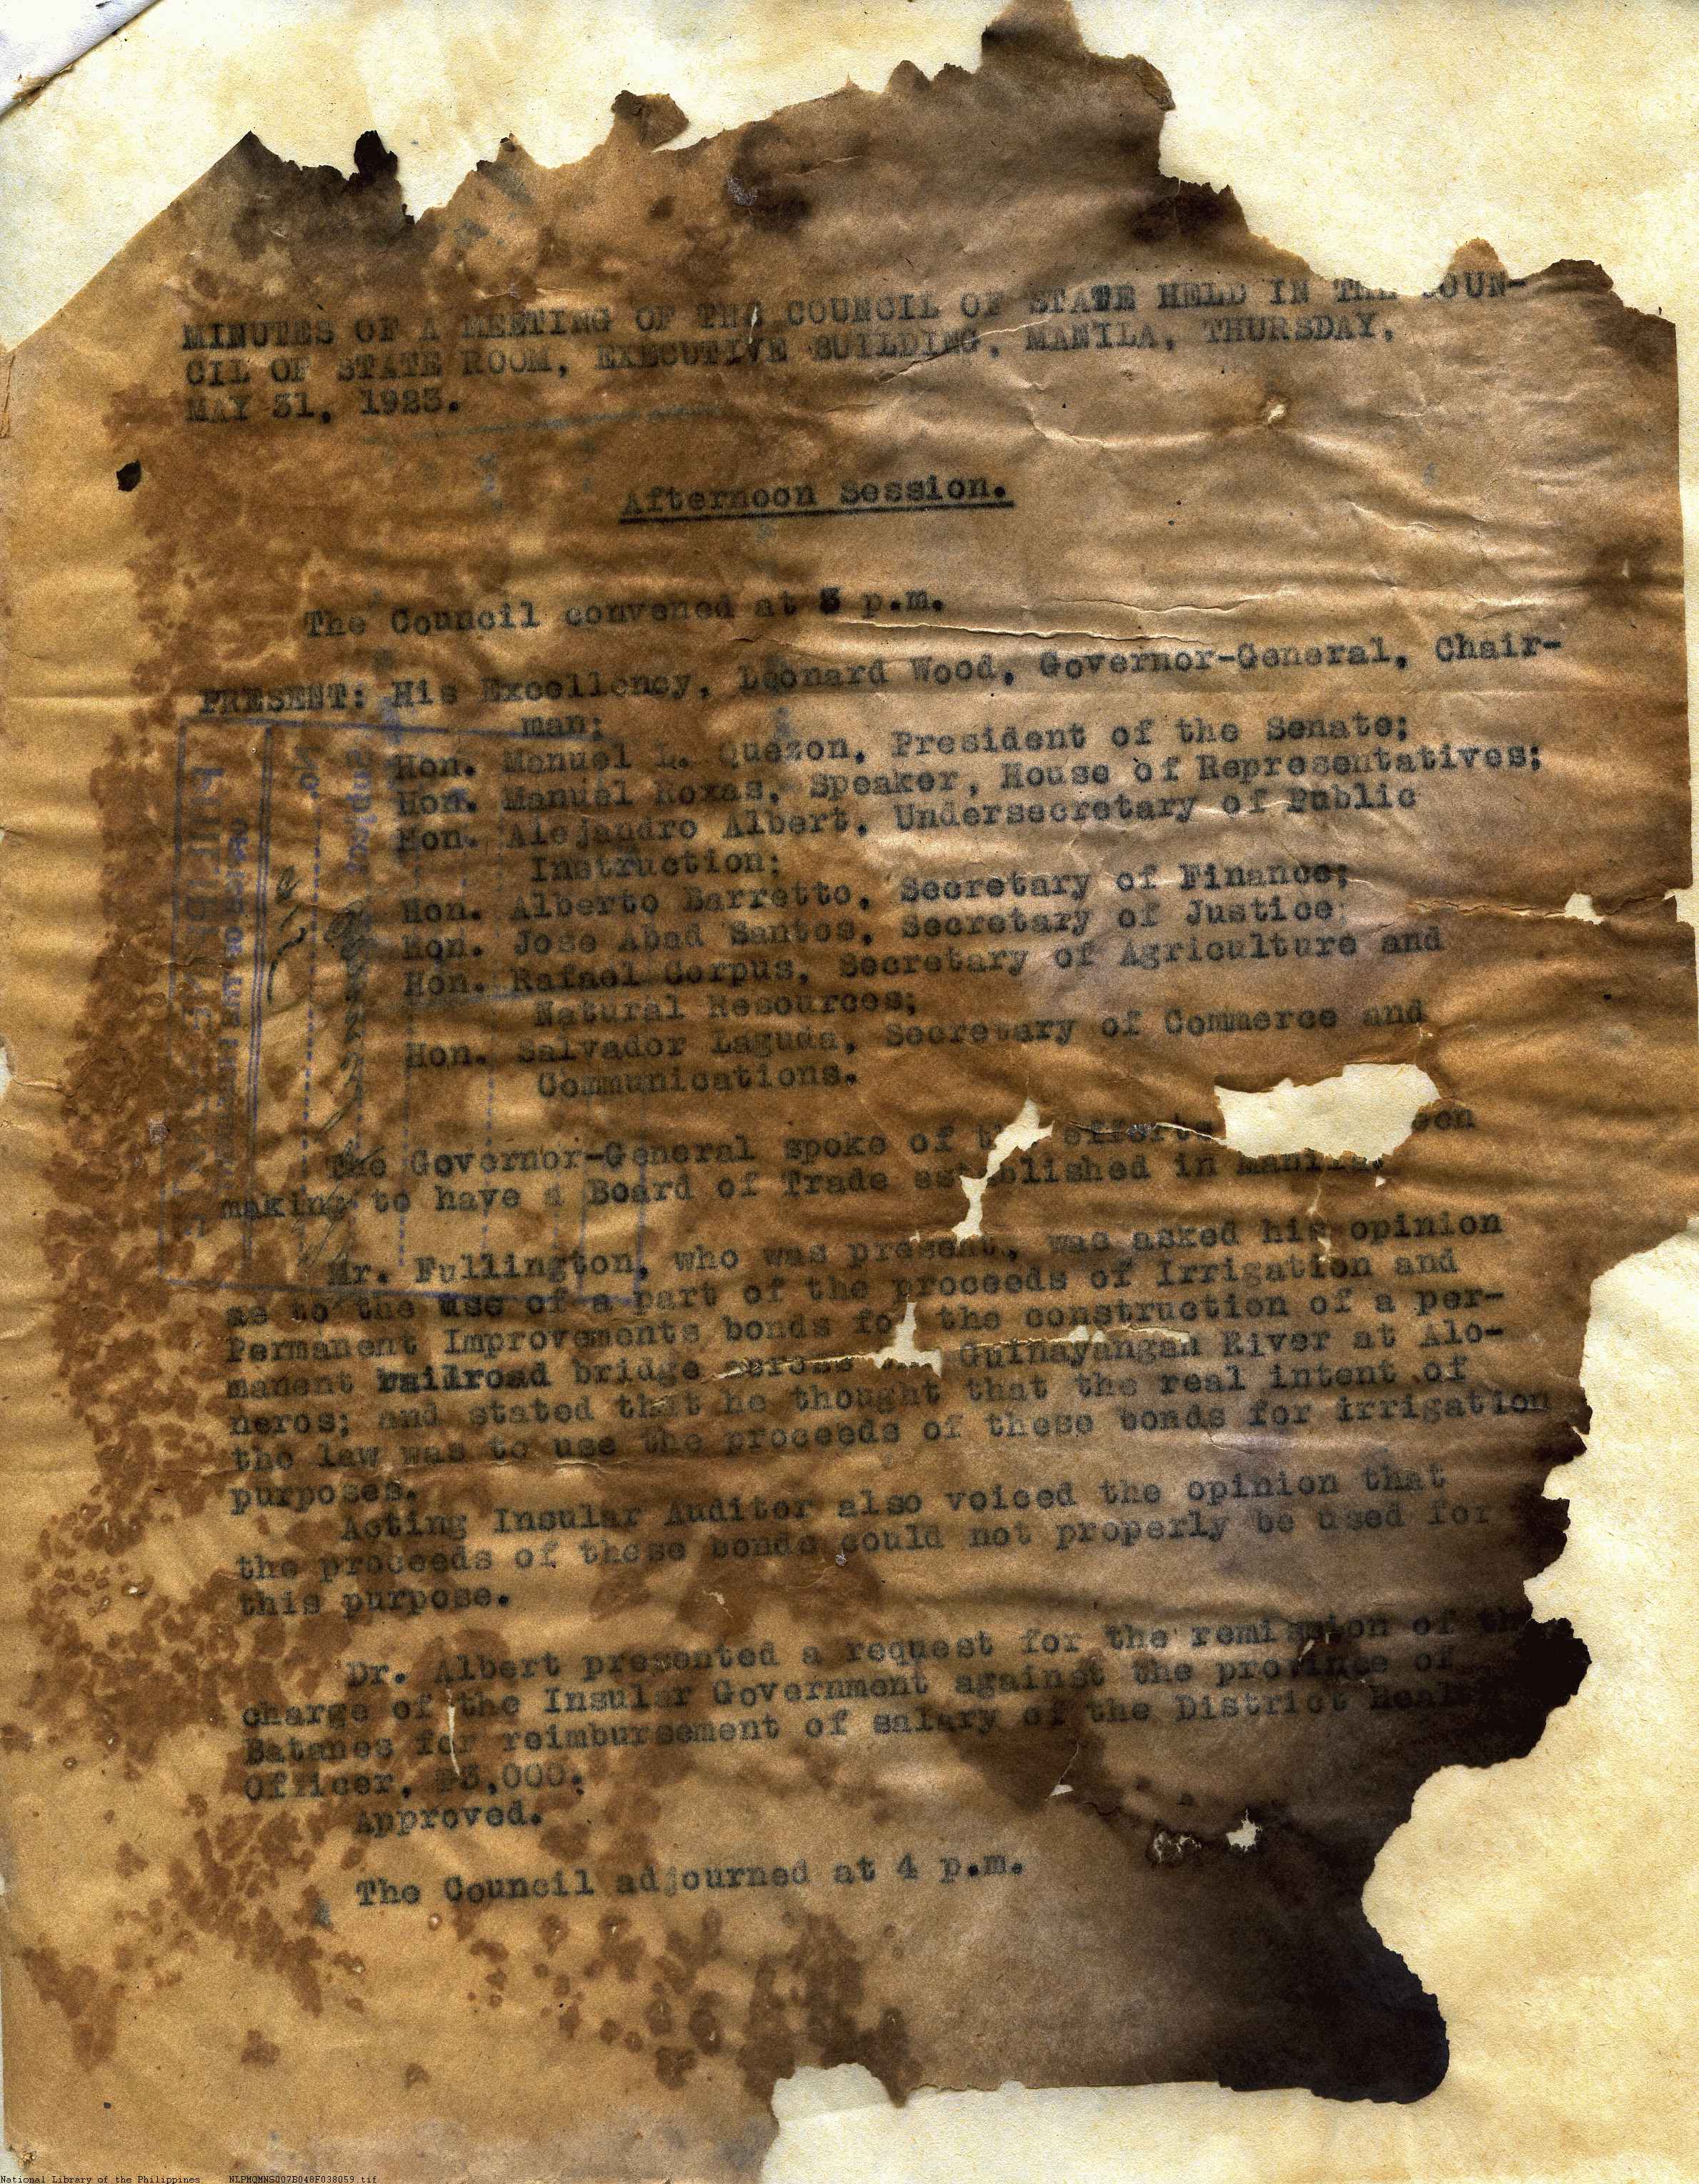 MINUTES OF A MEETING OF THE COUNCIL OF STATE HELD IN THE COUN-
CIL OF STATE ROOM, EXECUTIVE BUILDING, MANILA, THURSDAY,
MAY 31, 1923.
Afternoon Session.
The Council convened at 3 p.m.
PRESENT: His Excellency, Leonard Wood, Governor-General, Chair-
man;
Hon. Manuel L. Quezon, President of the Senate;
Hon. Manuel Roxas, Speaker, House of Representatives;
Hon. Alejandro Albert, Undersecretary of Public
Instruction;
Hon. Alberto Barretto, Secretary of Finance;
Hon. Jose Abad Santos, Secretary of Justice;
Hon. Rafael Corpus, Secretary of Agriculture and
Natural Resources;
Hon. Salvador Laguda, Secretary of Commerce and
Communications.
The Governor-General spoke of efforts
making to have a Board of Trade established in Manila.
Mr. Fullington, who was present, was asked his opinion
as to the use of a part of the proceeds of Irrigation and
Permanent Improvements bonds for the construction of a per-
manent railroad bridge across Guinayangan River at Alo-
neros; and stated that he thought that the real intent of
the law was to use the proceeds of these bonds for irrigation
purposes.
Acting Insular Auditor also voiced the opinion that
the proceeds of these bonds could not properly be used for
this purpose.
Dr. Albert presented a request for the remission of the
charge of the Insular Government against the province of
Batanes for reimbursement of salary of the District
Officer, ₱3,000.
Approved.
The Council adjourned at 4 p.m.
National Library of the Philippines NLPMQMNS007B048F038059.tif